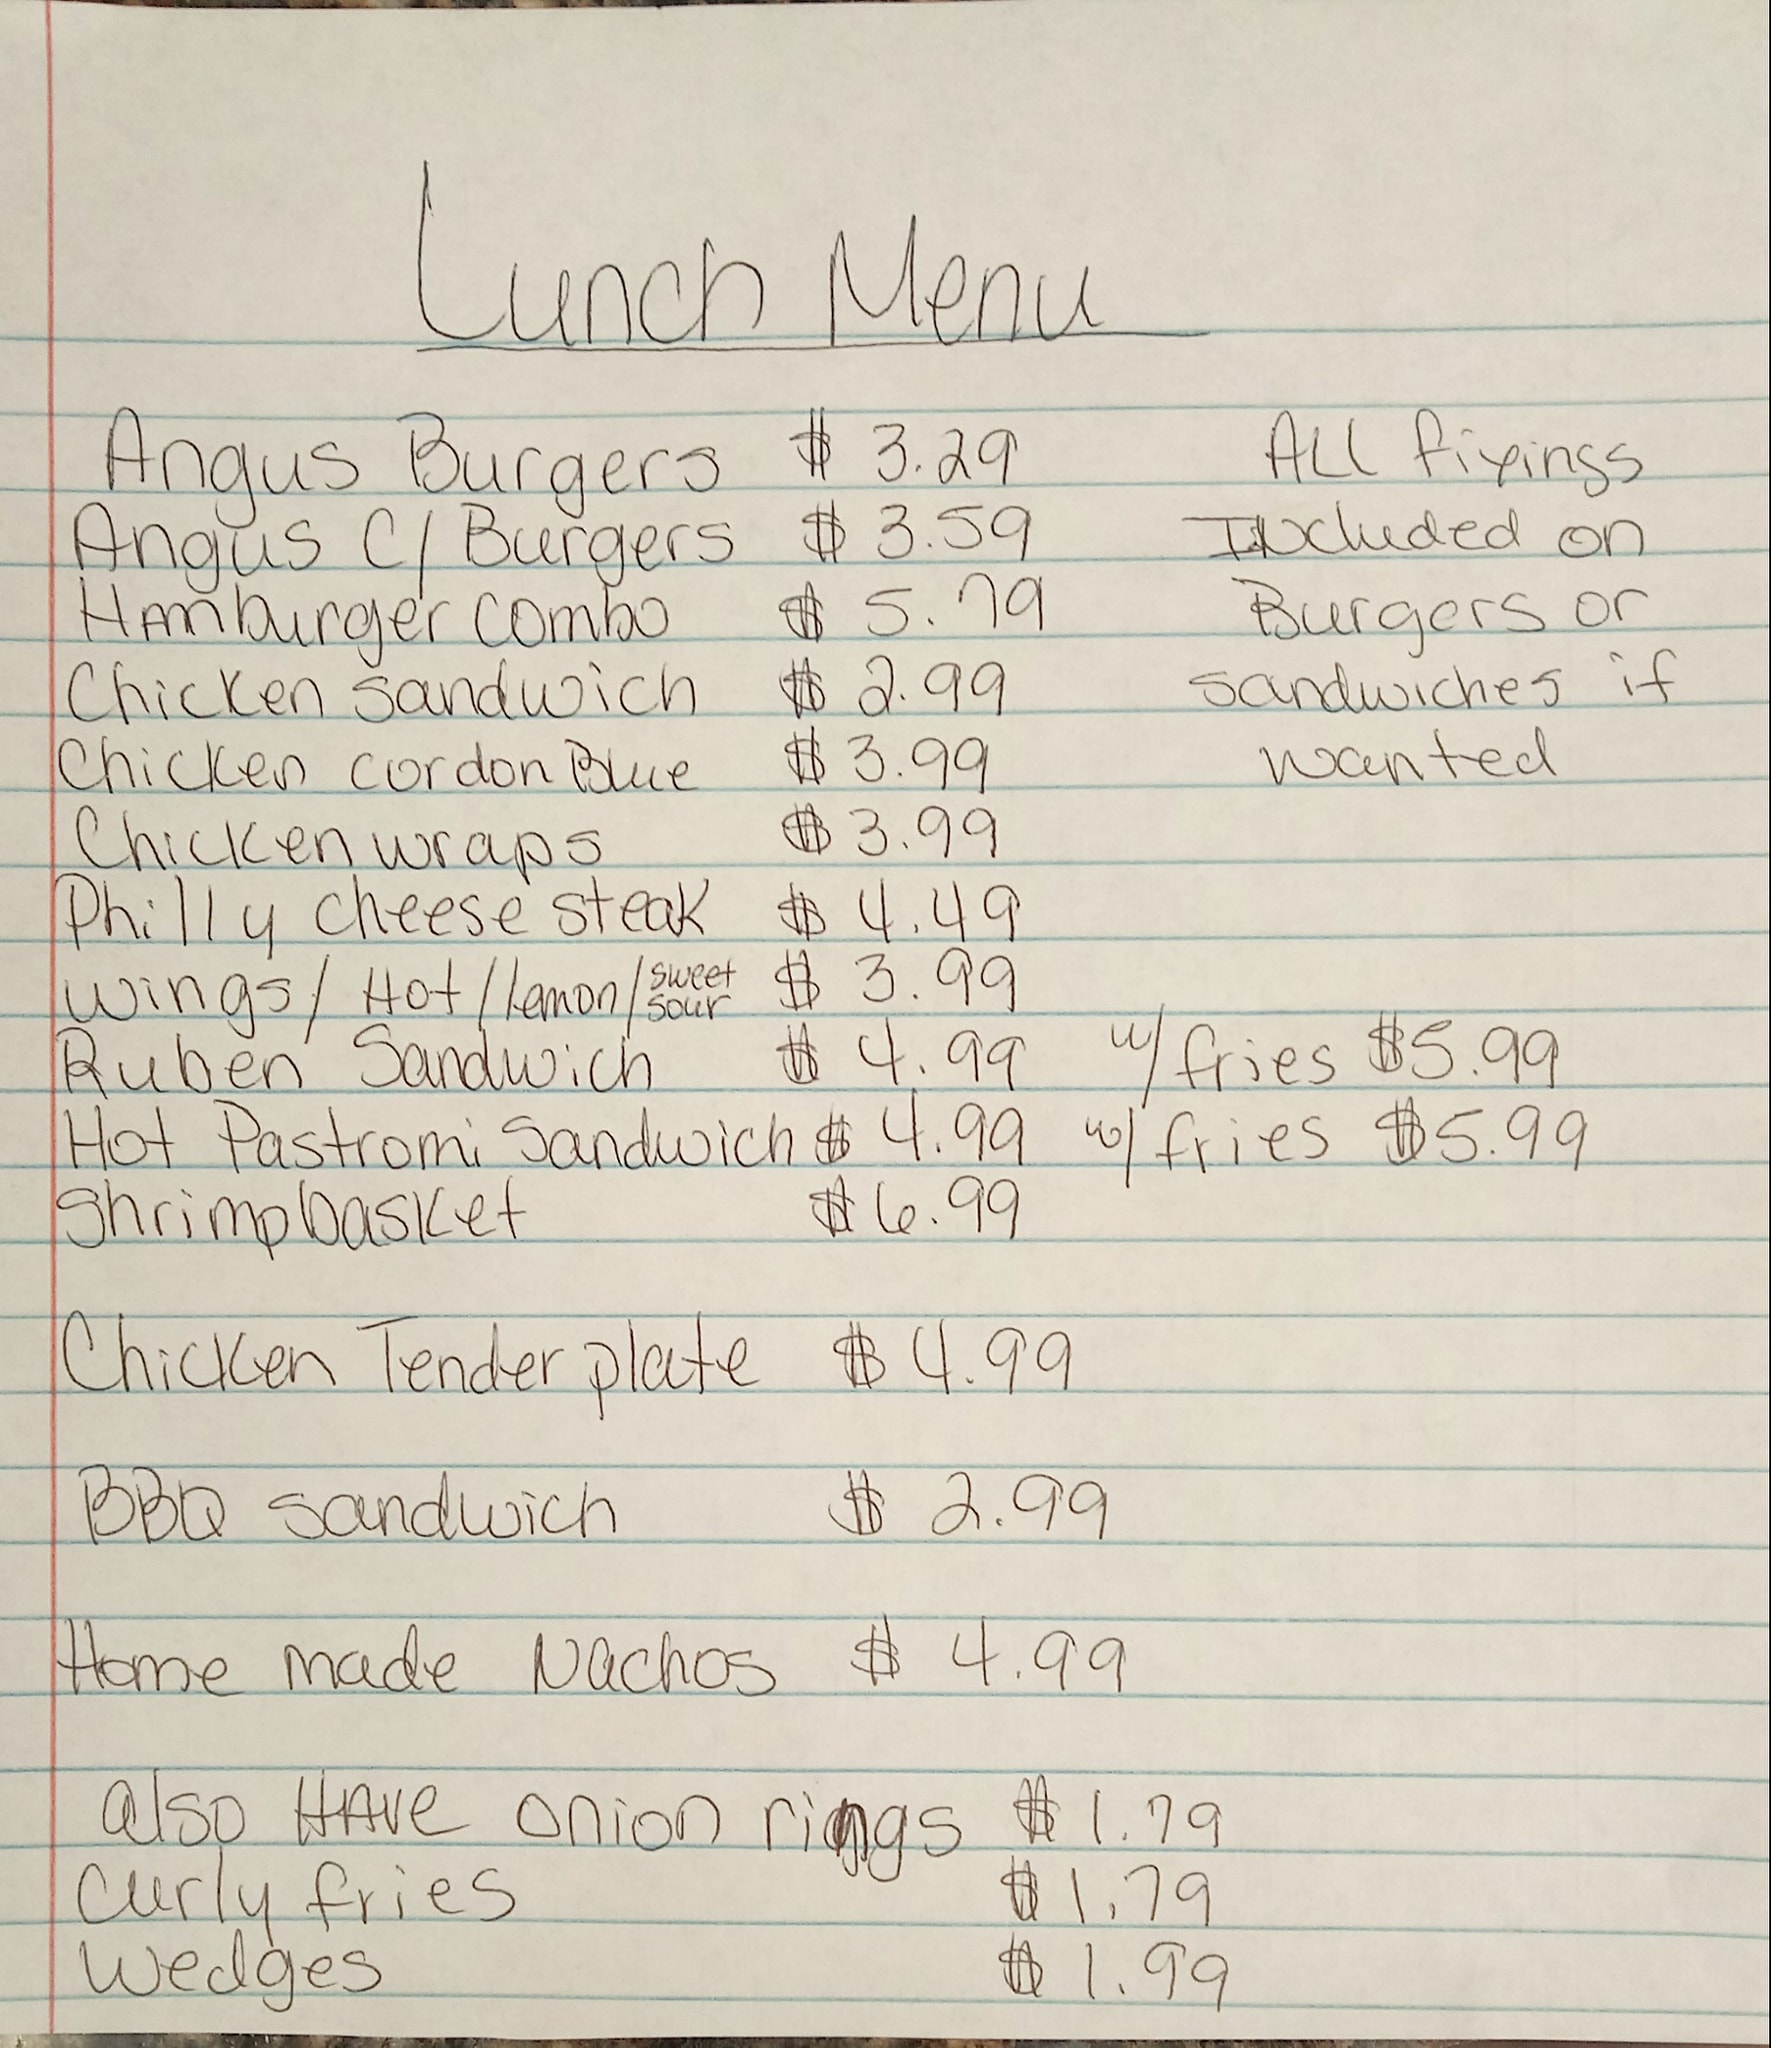 Lunch Menu
Angus Burgers $ 3.29 ALL fixings
Angus C/Burgers $ 3.59 Included on
Hamburger combo $ 5.79 Burgers or
Chicken sandwich $ 2.99 sandwiches if
Chicken cordon Blue $ 3.99 wanted
Chicken wraps $ 3.99
Philly cheese steak $ 4.49
wings/Hot/lemon/sweet sour $ 3.99
Ruben Sandwich $ 4.99 w/fries $5.99
Hot Pastromi Sandwich $ 4.99 w/fries $5.99
Shrimp basket $ 6.99
Chicken Tender plate $ 4.99
BBQ sandwich $ 2.99
Home made Nachos $ 4.99
also HAVE onion rings $ 1.79
Curly fries $ 1.79
Wedges $ 1.99